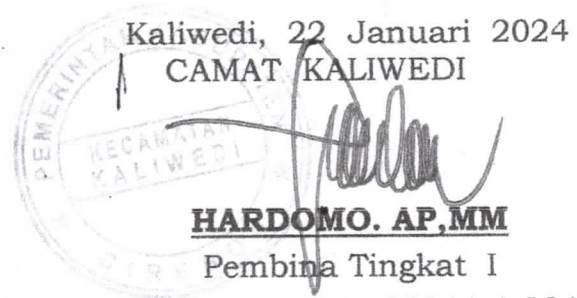 Kaliwedi, 22 Januari 2024
CAMAT KALIWEDI
KECAMATAN
KALIWEDI
HARDOMO. AP,MM
Pembina Tingkat I